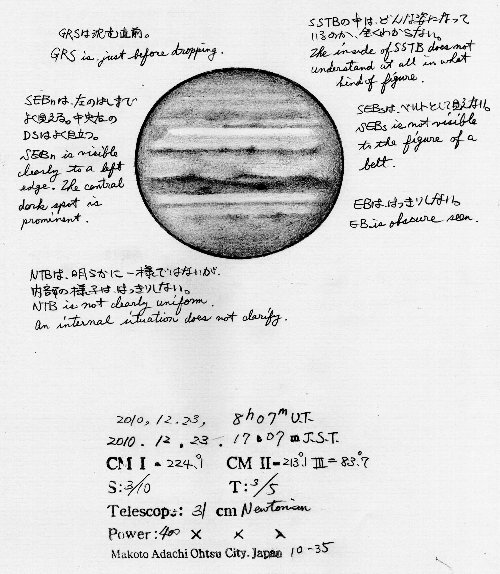 GRSは没する直前。
GRS is just before dropping.
SSTBの中は、どんな姿になって
いるのか、全くわからない。
The inside of SSTB does not
understand at all in what
kind of figure.
SEBnは、左のはしまで
よく見える。中央右の
DSはよく目立つ。
SEBn is visible
clearly to a left
edge. The central
dark spot is
prominent.
SEBsは、ベルトとして見えない。
SEBs is not visible
to the figure of a
belt.
EBは、はっきりしない。
EB is obscure seen.
NTBは、明らかに一様ではないが、
内部の様子は、はっきりしない。
NTB is not clearly uniform.
An internal situation does not clarify.
2010, 12.23, 8h07m U.T.
2010. 12. 23. 17h07m J.S.T.
CM I = 224.°1 CM II = 213.°1 III = 83.°7
S: 3/10 T: 3/5
Telescope: 31 cm Newtonian
Power: 400 × × ×
Makoto Adachi Ohtsu City. Japan 10-35